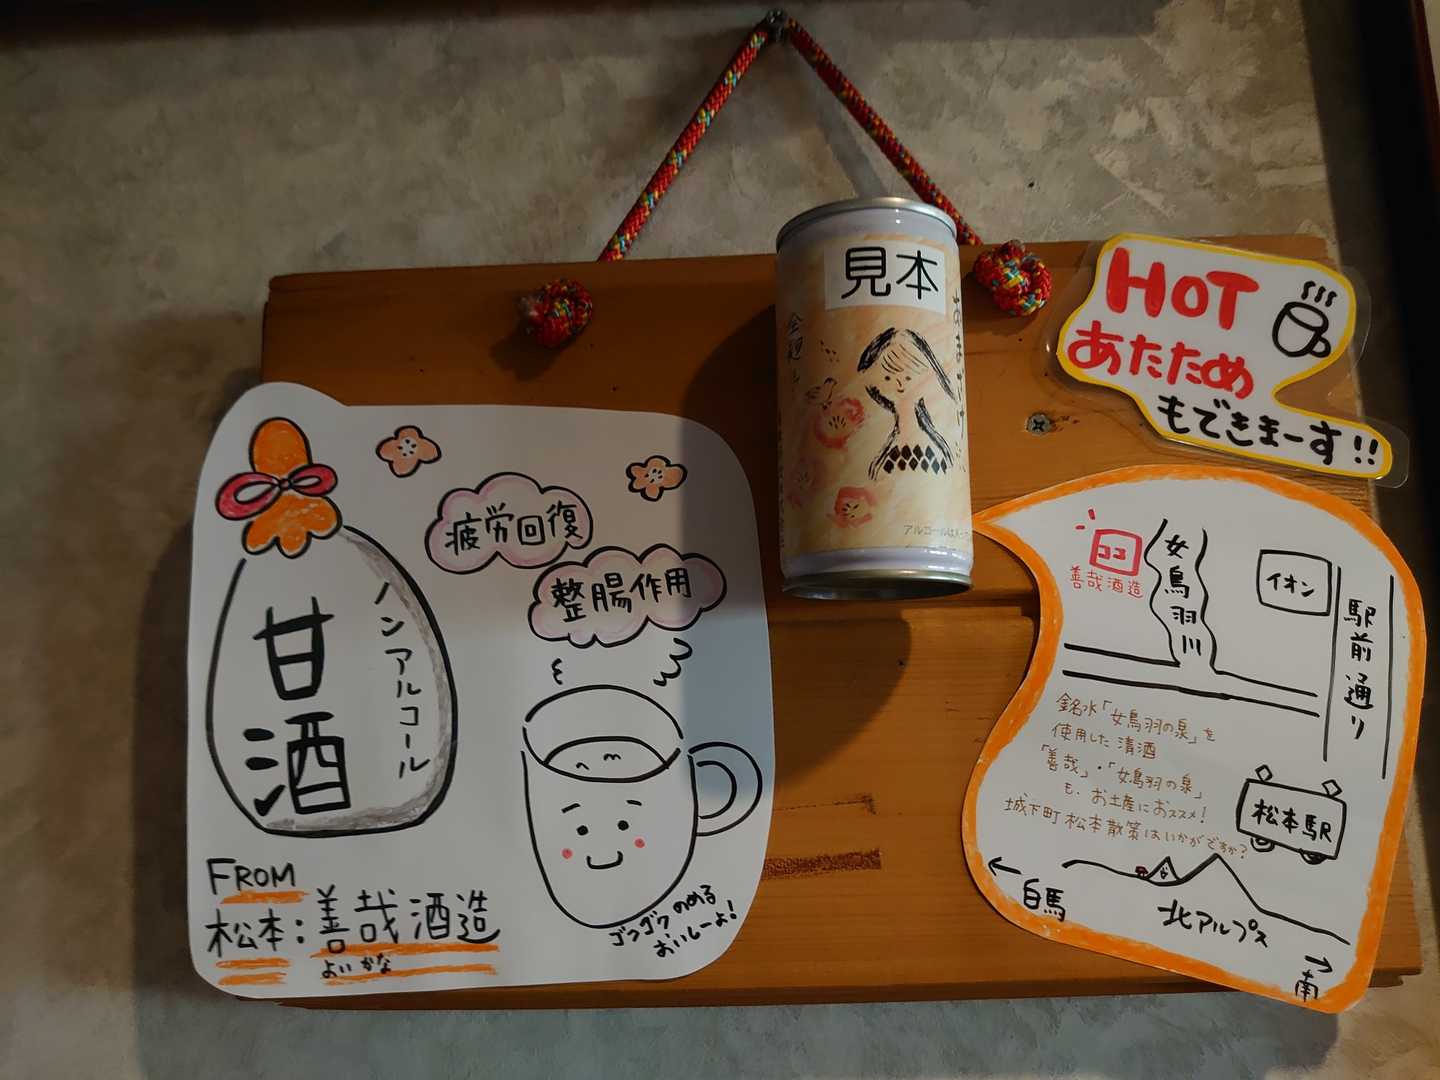 見本
あまざけ
全麹
アルコール
HOT
あたため
もできまーす!!
疲労回復
整腸作用
ノンアルコール
甘酒
FROM
松本:善哉酒造
よいかな
ゴクゴクのめる
おいしーよ!
ココ
善哉酒造
女鳥羽川
イオン
駅前通り
銘水「女鳥羽の泉」を
使用した清酒
「善哉」・「女鳥羽の泉」
も、お土産におススメ!
城下町松本散策はいかがですか?
松本駅
←白馬
北アルプス
→南